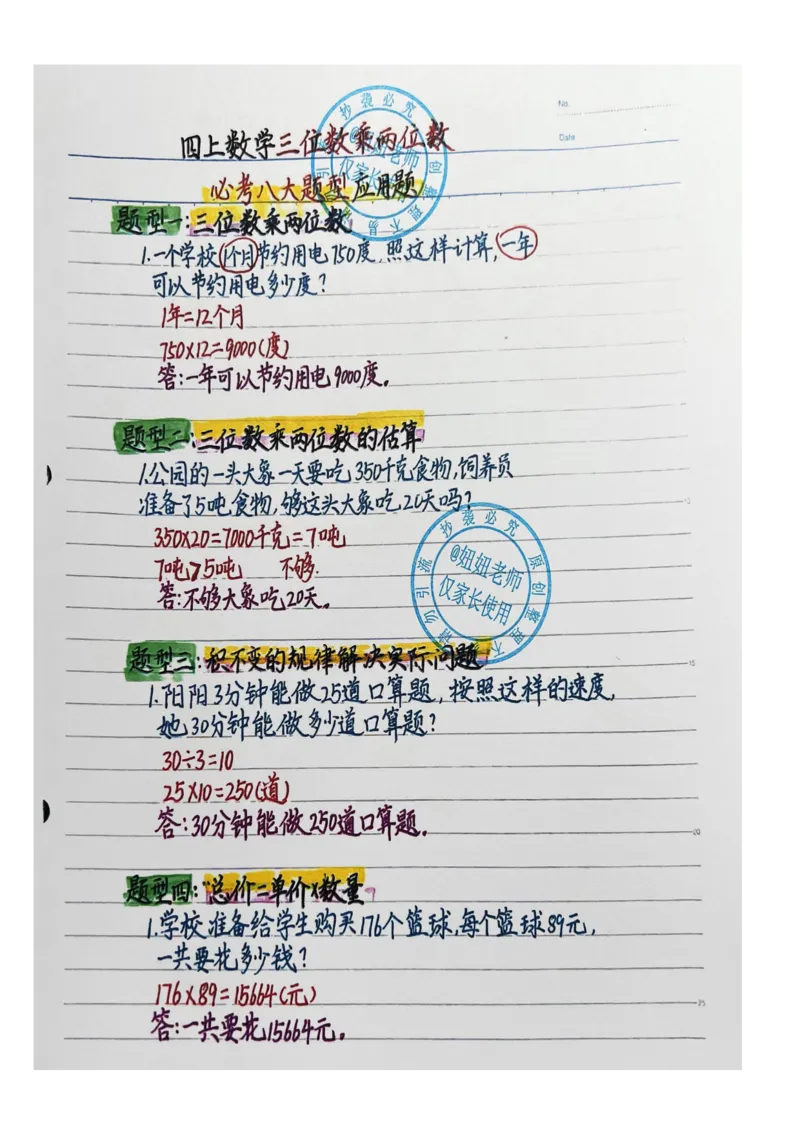 No.
Date
四上数学三位数乘两位数
必考八大题型应用题
题型一:三位数乘两位数
1.一个学校1个月节约用电750度,照这样计算,一年
可以节约用电多少度?
1年=12个月
750×12=9000(度)
答:一年可以节约用电9000度。
题型二:三位数乘两位数的估算
1.公园的一头大象一天要吃350千克食物,饲养员
准备了5吨食物,够这头大象吃20天吗?
350×20=7000千克=7吨
7吨>5吨 不够.
答:不够大象吃20天。
抄袭必究 原创整理不
请勿引流
@妞妞老师
仅家长使用
题型三:积不变的规律解决实际问题
1.阳阳3分钟能做25道口算题,按照这样的速度,
她30分钟能做多少道口算题?
30÷3=10
25×10=250(道)
答:30分钟能做250道口算题。
题型四:"总价=单价×数量"
1.学校准备给学生购买176个篮球,每个篮球89元,
一共要花多少钱?
176×89=15664(元)
答:一共要花15664元。
15
20
25